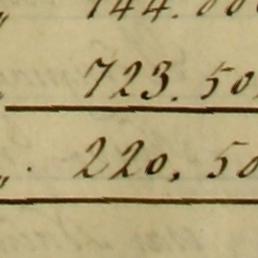 144.00
„ 723.50
„ . 220,50